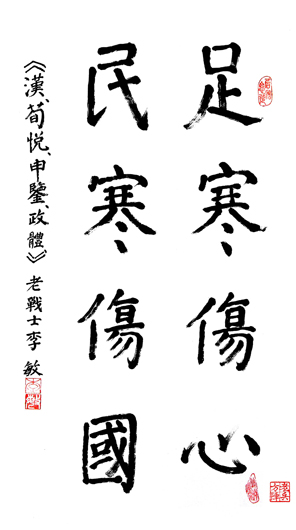 足寒傷心
民寒傷國
《漢、荀悅、申鑒、政體》老戰士李敏